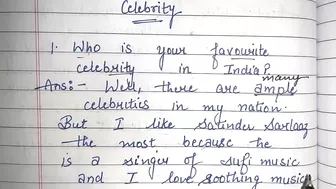 Celebrity
1. Who is your favourite
celebrity in India?
Ans:- Well, there are many ample
celebrities in my nation.
But I like Satinder Sartaaj
the most because he
is a singer of Sufi music
and I love soothing music